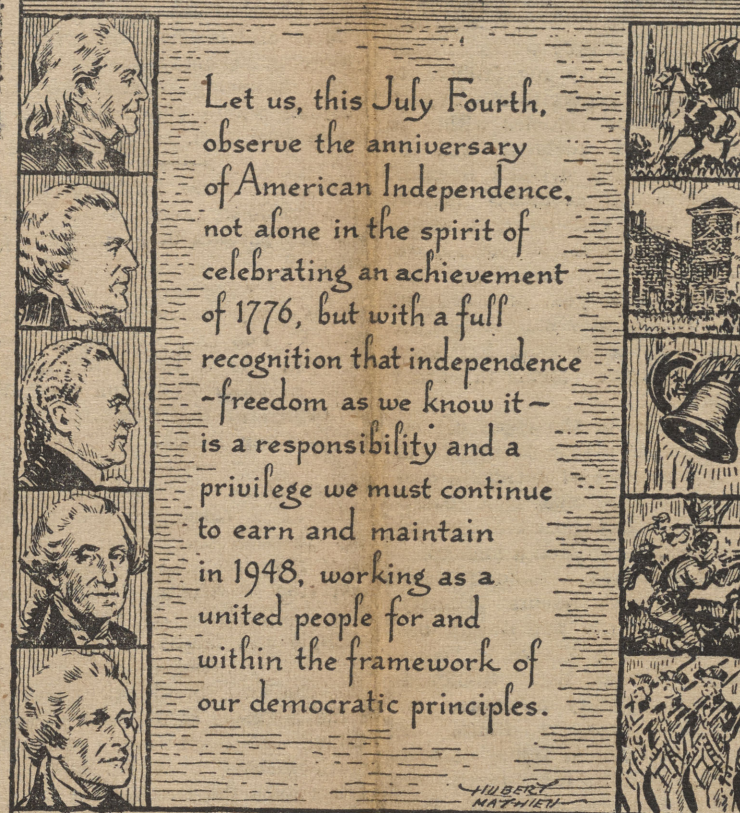 Let us, this July Fourth,
observe the anniversary
of American Independence,
not alone in the spirit of
celebrating an achievement
of 1776, but with a full
recognition that independence
-freedom as we know it-
is a responsibility and a
privilege we must continue
to earn and maintain
in 1948, working as a
united people for and
within the framework of
our democratic principles.
HILBERT
MATHIEU